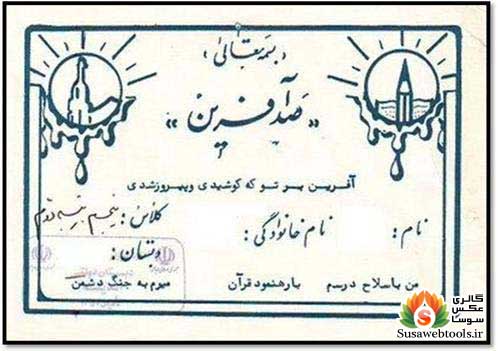 (بسمه تعالی)
«صد آفرین»
آفرین بر تو که کوشیدی و پیروز شدی
نام : نام خانوادگی : کلاس : پنجم
دبستان :
من با سلاح درسم با رهنمود قرآن میرم به جنگ دشمن
گالری
عکس
سوسا
Susawebtools.ir